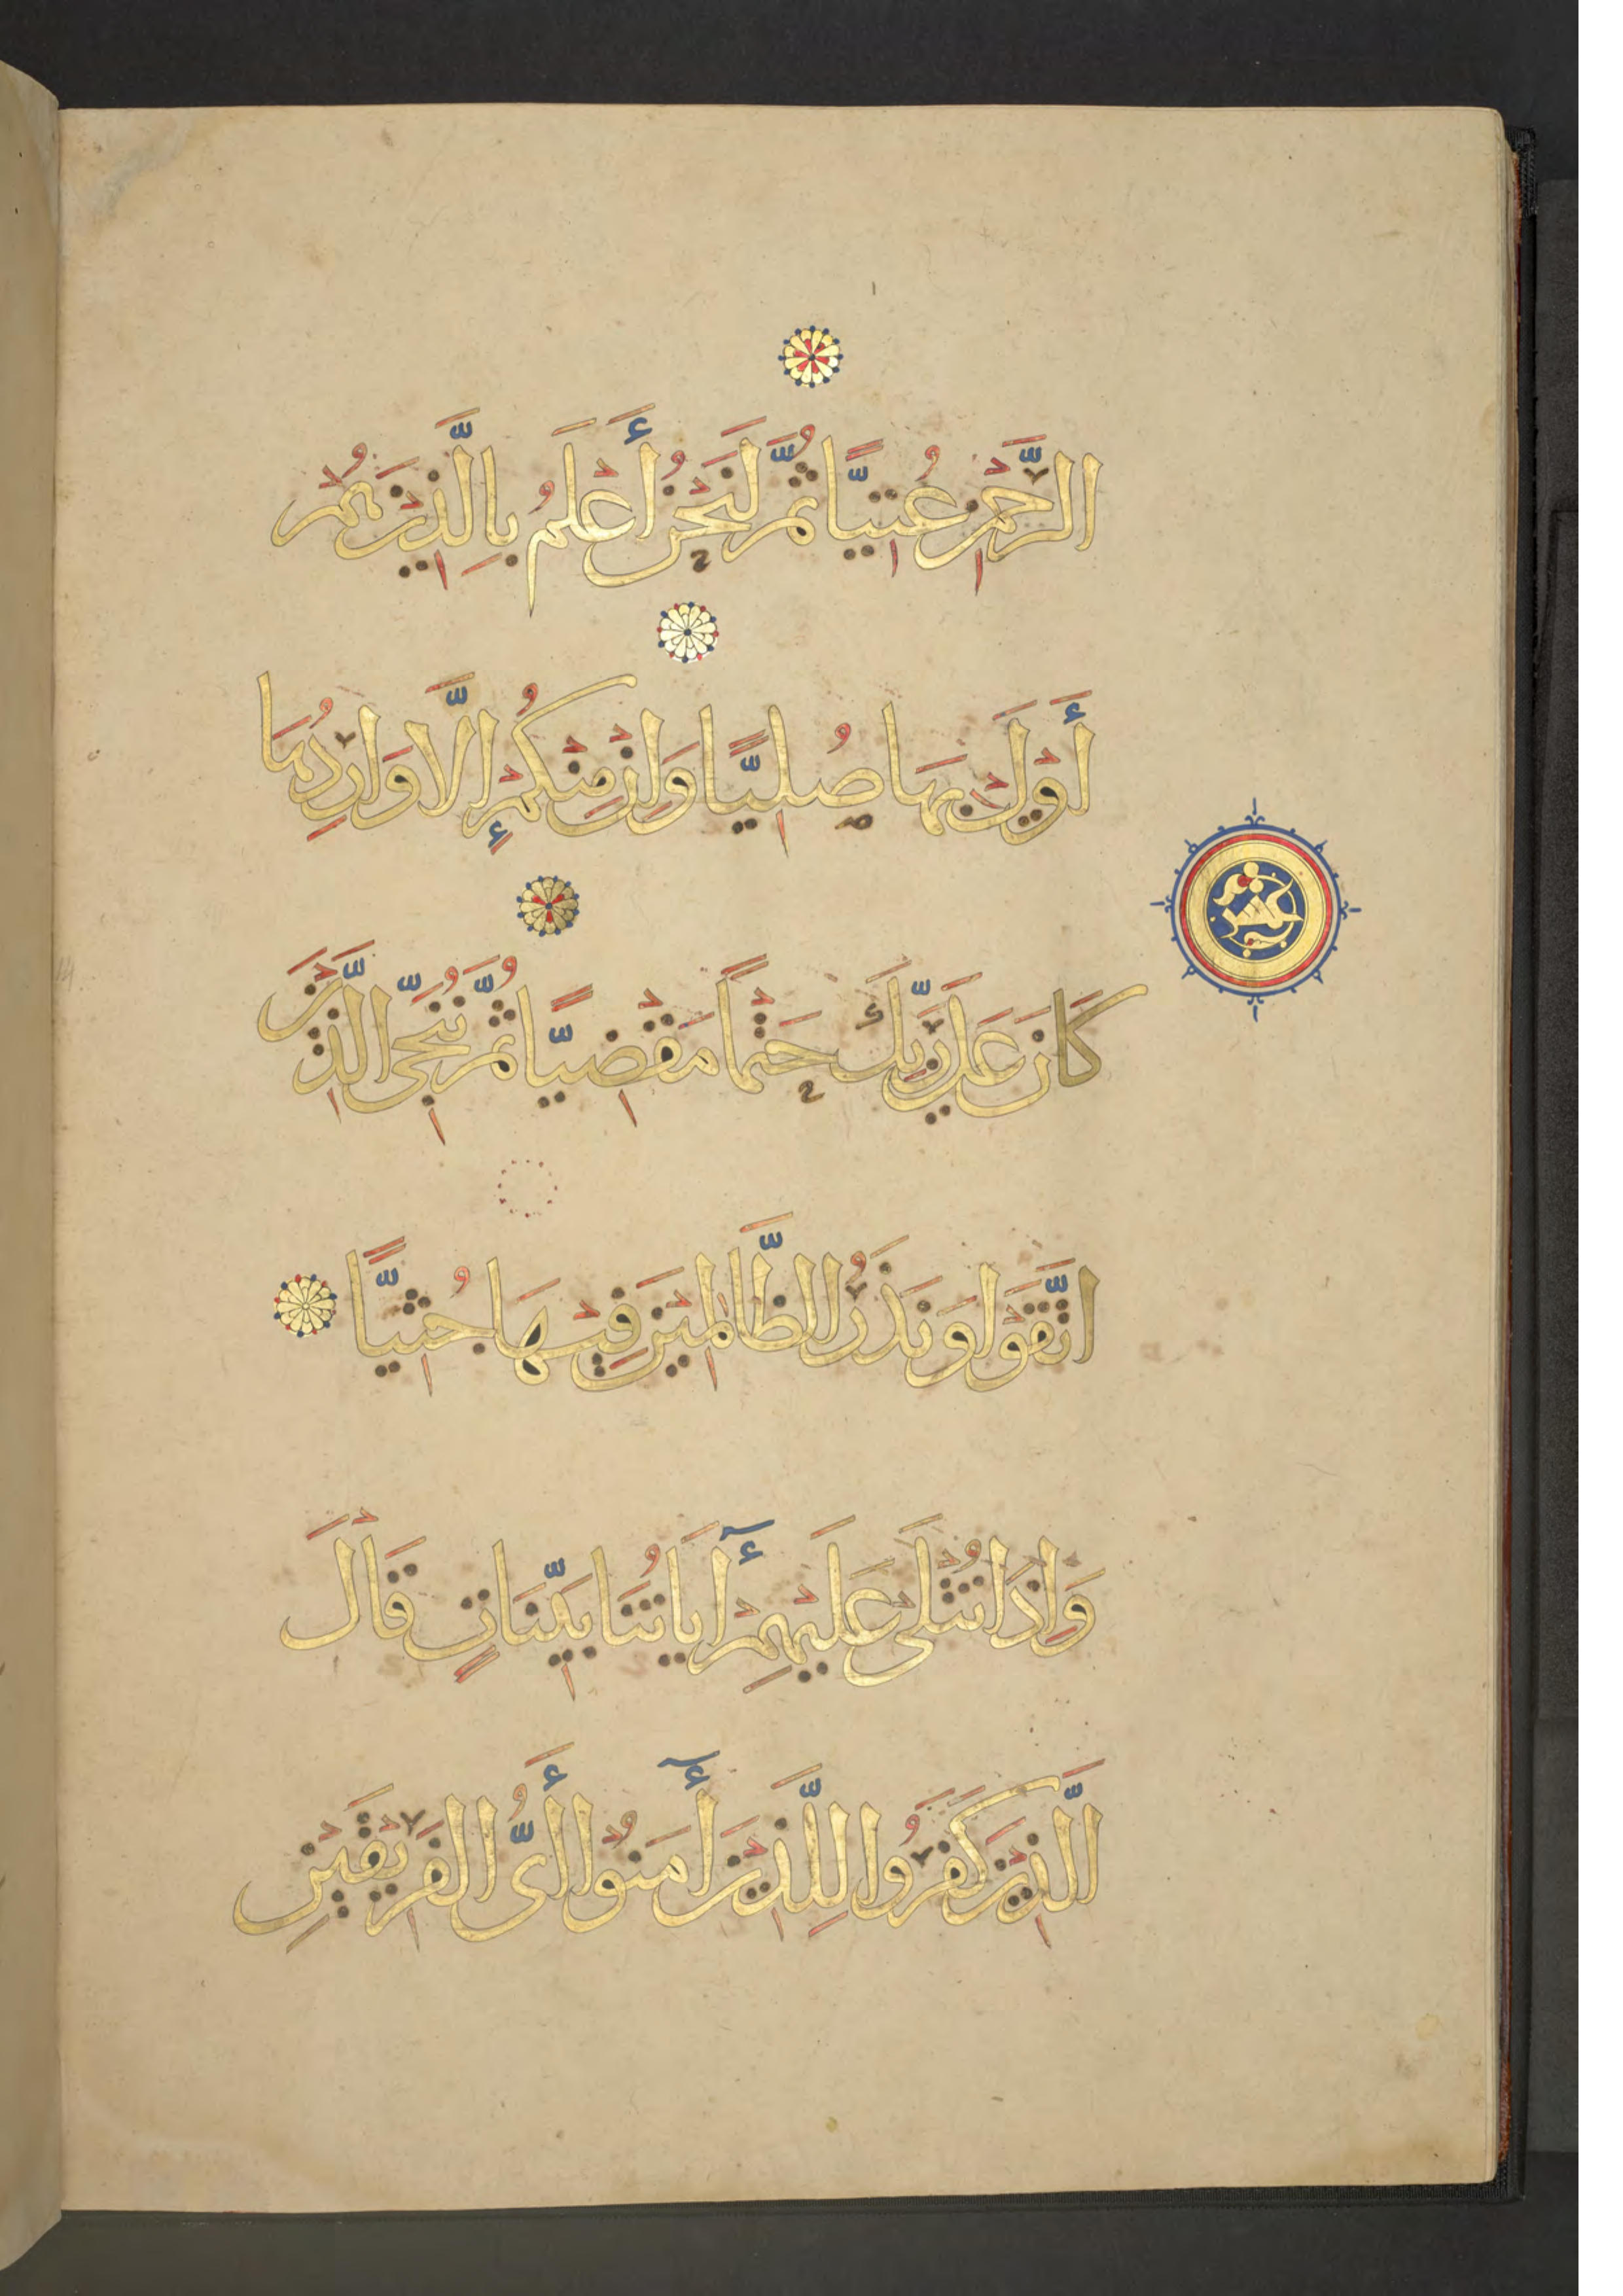 الرَّحْمنِ عُتِيًّا ثُمَّ لَنَحْنُ أَعْلَمُ بِالَّذِينَ هُمْ
أَوْلَى بِهَا صُلِيًّا وَإِنْ مِنْكُمْ إِلَّا وَارِدُهَا
عشر
كَانَ عَلَى رَبِّكَ حَتْمًا مَقْضِيًّا ثُمَّ نُنَجِّى الَّذِينَ
اتَّقَوْا وَنَذَرُ الظَّالِمِينَ فِيهَا جُثِيًّا
وَإِذَا تُتْلَى عَلَيْهِمْ آيَاتُنَا بَيِّنَاتٍ قَالَ
الَّذِينَ كَفَرُوا لِلَّذِينَ آمَنُوا أَىُّ الْفَرِيقَيْنِ